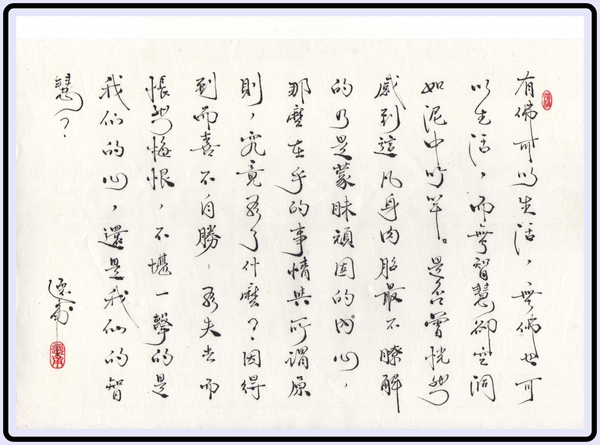 有佛可以生活，無佛也可
以生活，而無智慧卻空洞
如泥中竹竿。是否曾恍然
感到這凡身肉胎最不瞭解
的乃是蒙昧頑固的內心，
那麼在乎的事情其所謂原
則，究竟為了什麼？因得
到而喜不自勝，為失去而
悵然悔恨，不堪一擊的是
我们的心，還是我们的智
慧？